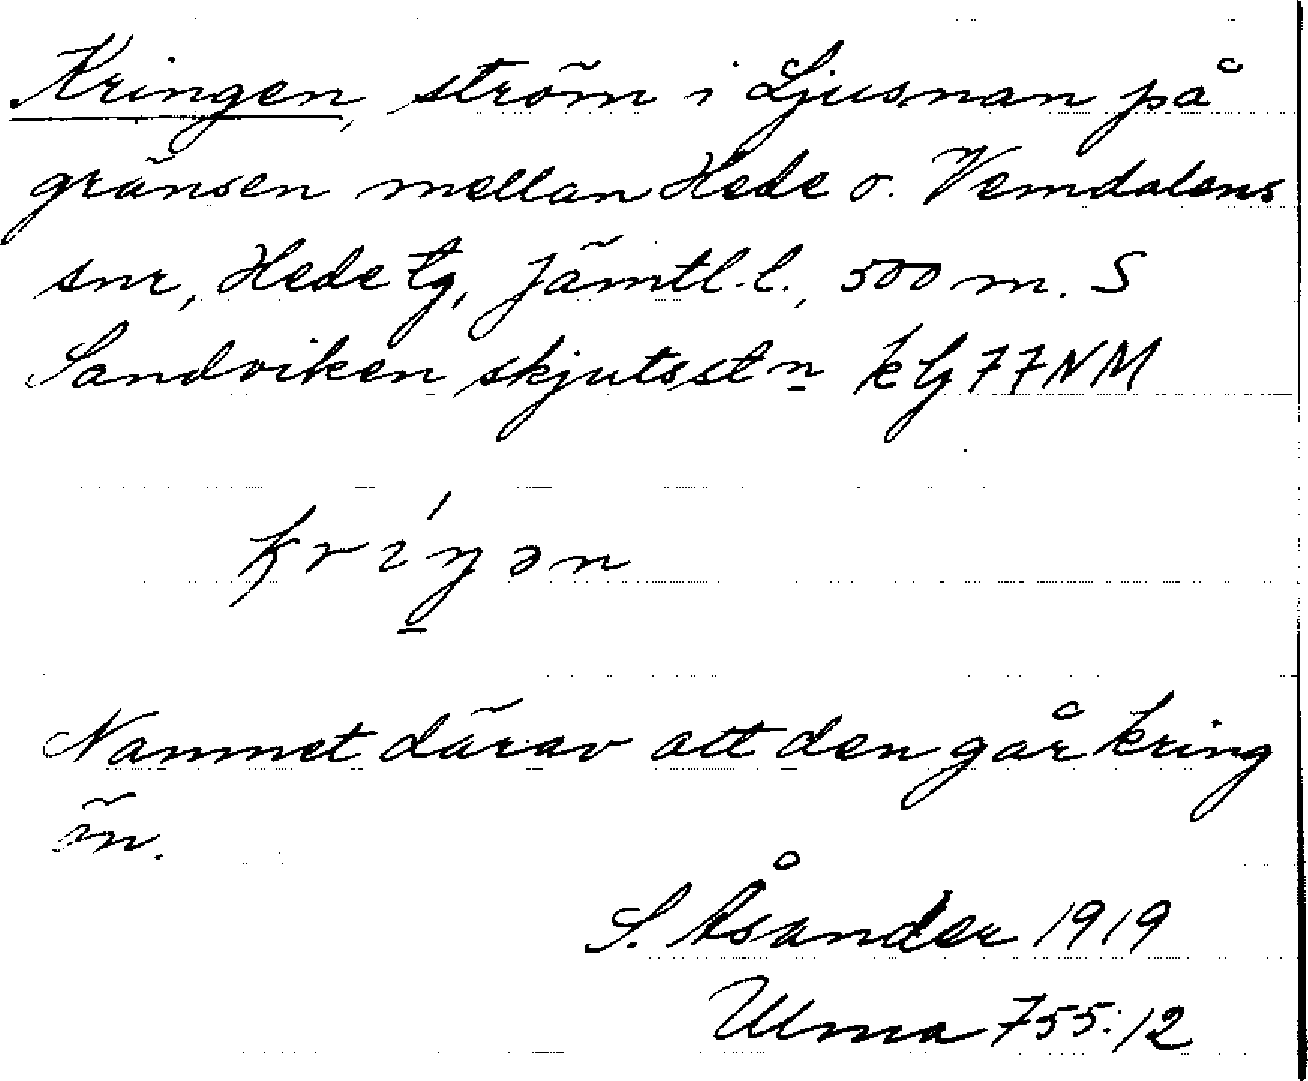 Kringen, ström i Ljusnan på
gränsen mellan Hede o. Vemdalens
snr, Hede tg, Jämtl. l., 500 m. S
Sandviken skjutsstn kbl 77NM
krıŋ́ən
Namnet därav att den går kring
ön.
S. Åsander 1919
Ulma 755:12